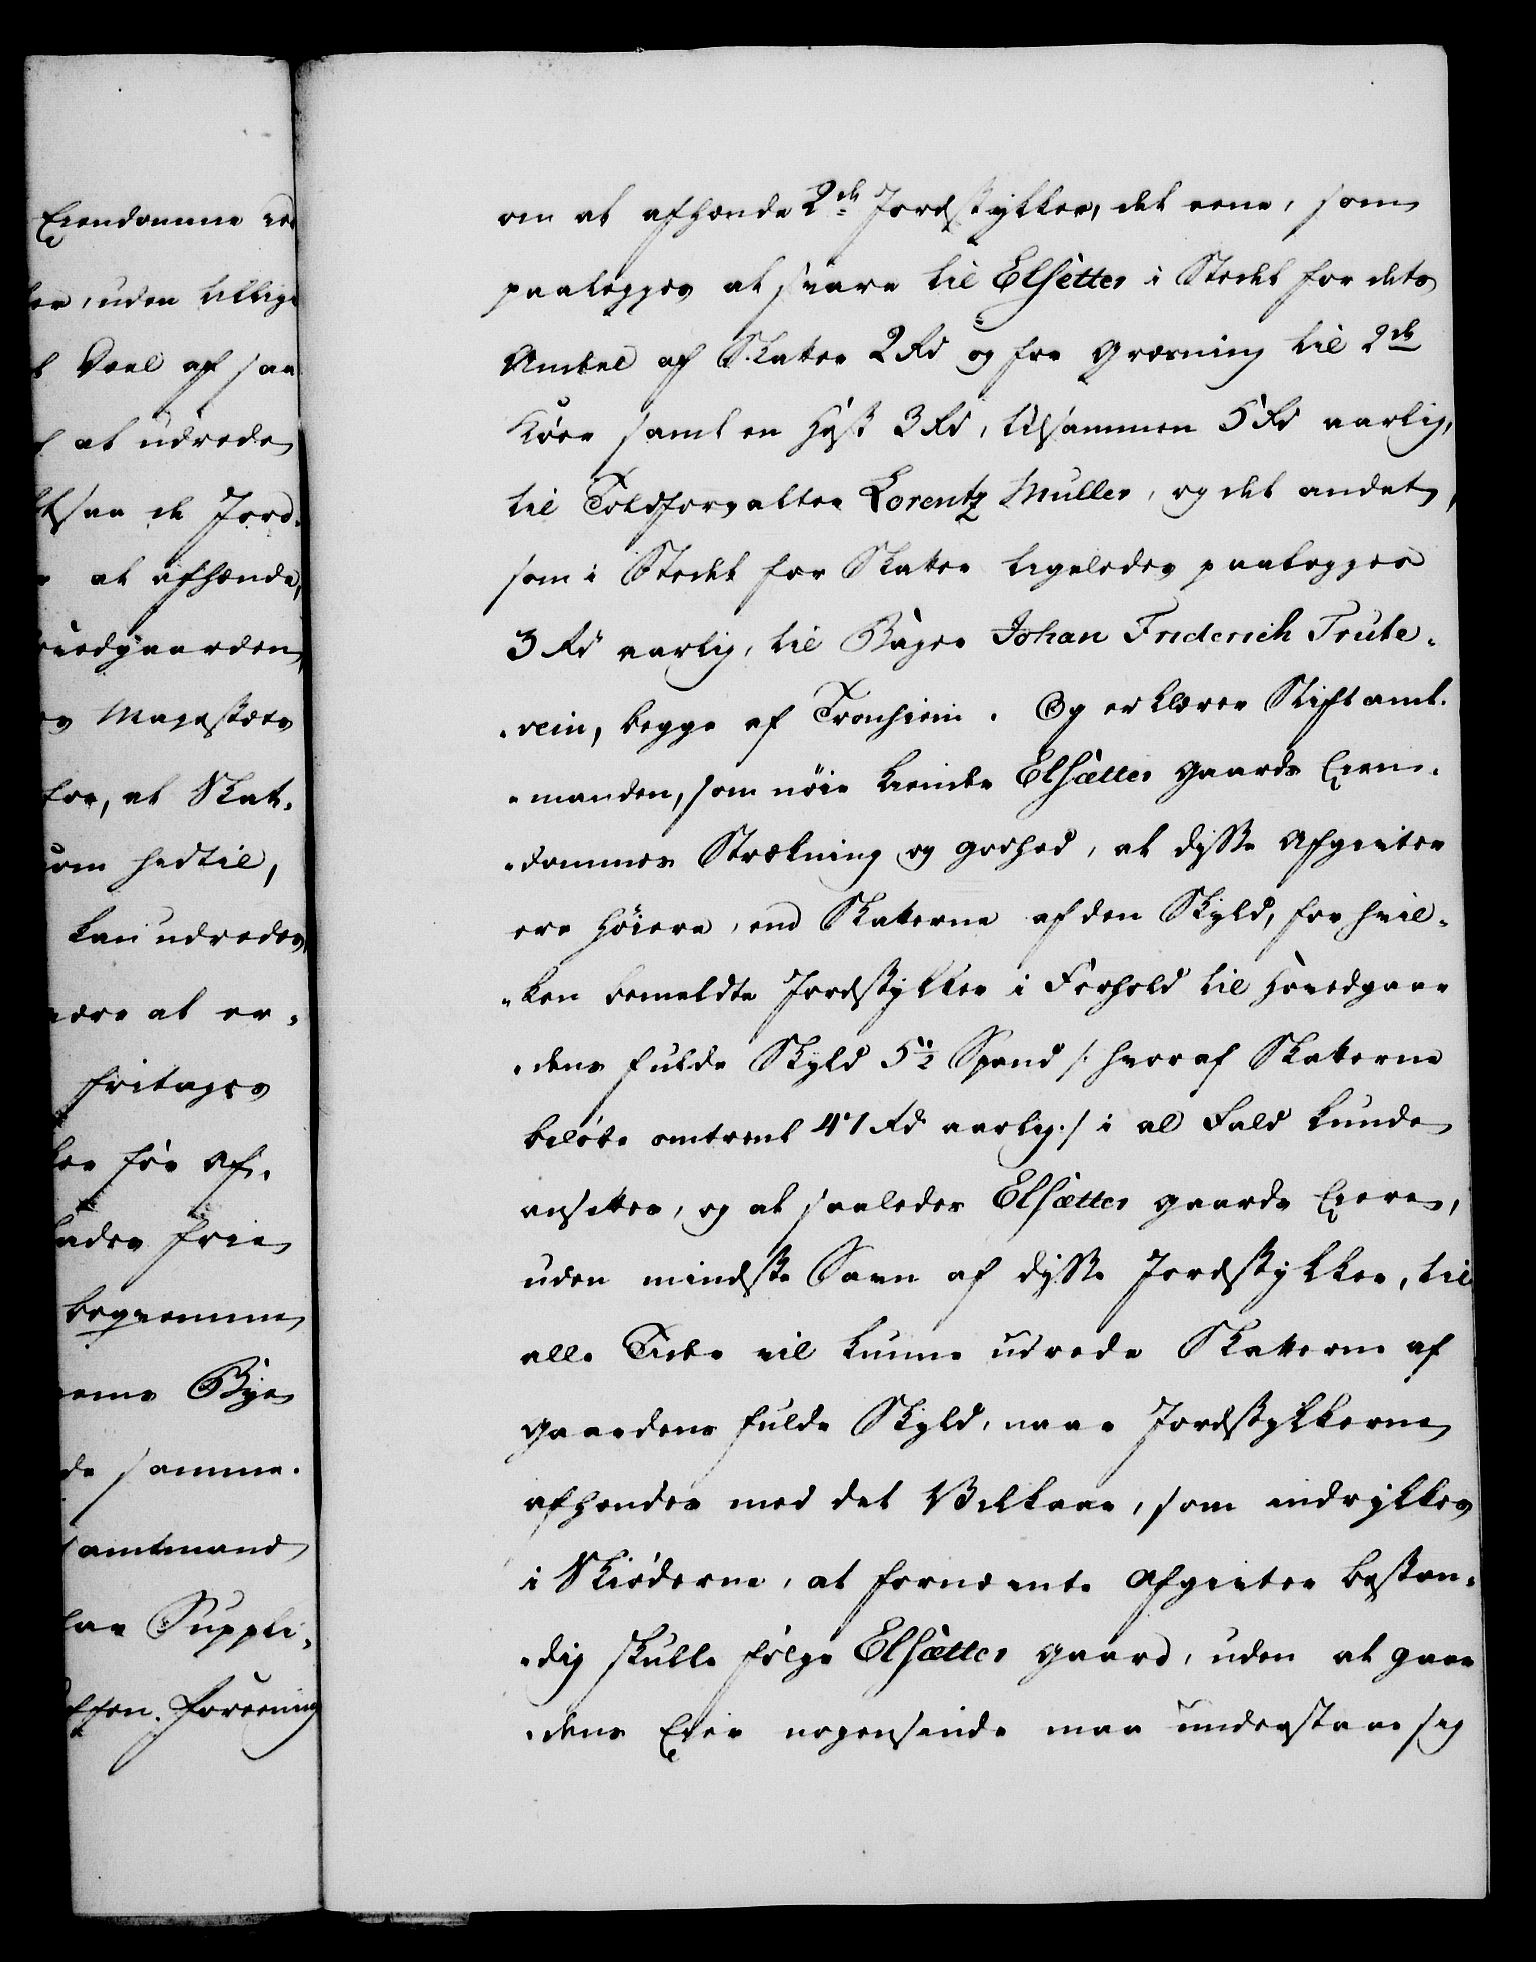 Eiendomme
uden tillige
Deel af saa
at udrede
saa de Jord-
at afhænde,
Hovedgaarden
Majestæts
for, at Skat-
som hidtil,
kan udredes,
være at er-
fritages
for Af-
frie
beqvemme
Bye
de samme.
amtmand
Suppli-
Foreening
om at afhænde 2de Jordstykker, det eene, som
paalegges at svare til Elsetter i Stedet for dets
Andeel af Skatter 2 Rd og for Græsning til 2de
Kiøer samt en Hest 3 Rd, tilsammen 5 Rd aarlig,
til Toldforvalter Lorentz Muller, og det andet,
som i Stedet for Skatter ligeledes paalegges
3 Rd aarlig, til Bager Johan Friderich Trute-
-vein, begge af Tronhiem. Og erklærer Stiftamt-
-manden, som nöie kiender Elsætter Gaards Eien-
-dommes Strækning og Godhed, at disse Afgivter
ere höiere, end Skatterne af den Skyld, for hvil-
-ken bemeldte Jordstykker i Forhold til Hovedgaar-
-dens fulde Skyld 5½ Spand /: hvoraf Skatterne
beløbe omtrent 41 Rd aarlig :/ i al Fald kunde
ansettes, og at saaledes Elsætter Gaards Eiere,
uden mindste Savn af disse Jordstykker, til
alle Tider vil kunne udrede Skatterne af
Gaardens fulde Skyld, naar Jordstykkerne
afhendes med det Vilkaar, som indrykkes
i Skiøderne, at fornævnte Afgivter bestan-
-dig skulle følge Elsætter Gaard, uden at Gaar-
-dens Eier nogensinde maa understaae sig